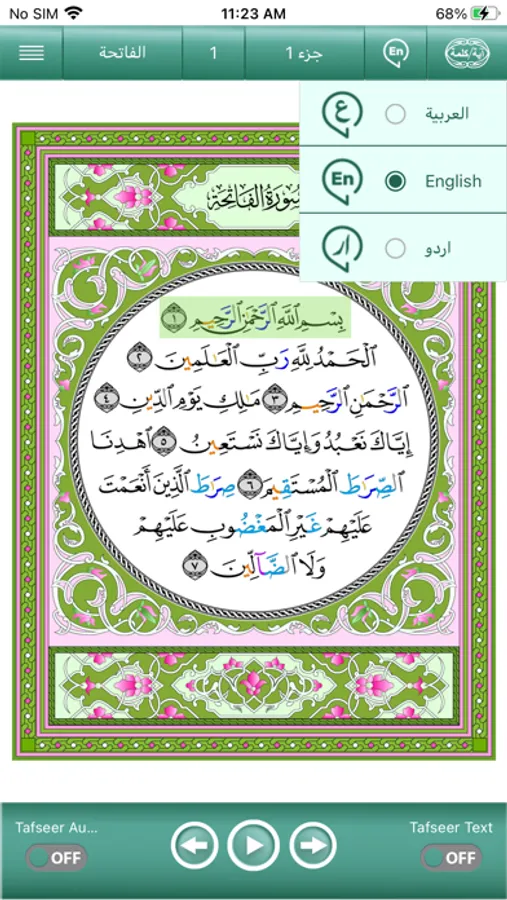 No SIM 11:23 AM 68%
الفاتحة 1 جزء 1 En آية/كلمة
ع العربية
En English
ار اردو
سُورَةُ الفَاتِحَة
بِسْمِ اللَّهِ الرَّحْمَٰنِ الرَّحِيمِ ١
الْحَمْدُ لِلَّهِ رَبِّ الْعَالَمِينَ ٢
الرَّحْمَٰنِ الرَّحِيمِ ٣ مَالِكِ يَوْمِ الدِّينِ ٤
إِيَّاكَ نَعْبُدُ وَإِيَّاكَ نَسْتَعِينُ ٥ اهْدِنَا
الصِّرَاطَ الْمُسْتَقِيمَ ٦ صِرَاطَ الَّذِينَ أَنْعَمْتَ
عَلَيْهِمْ غَيْرِ الْمَغْضُوبِ عَلَيْهِمْ
وَلَا الضَّالِّينَ ٧
Tafseer Au... Tafseer Text
OFF OFF